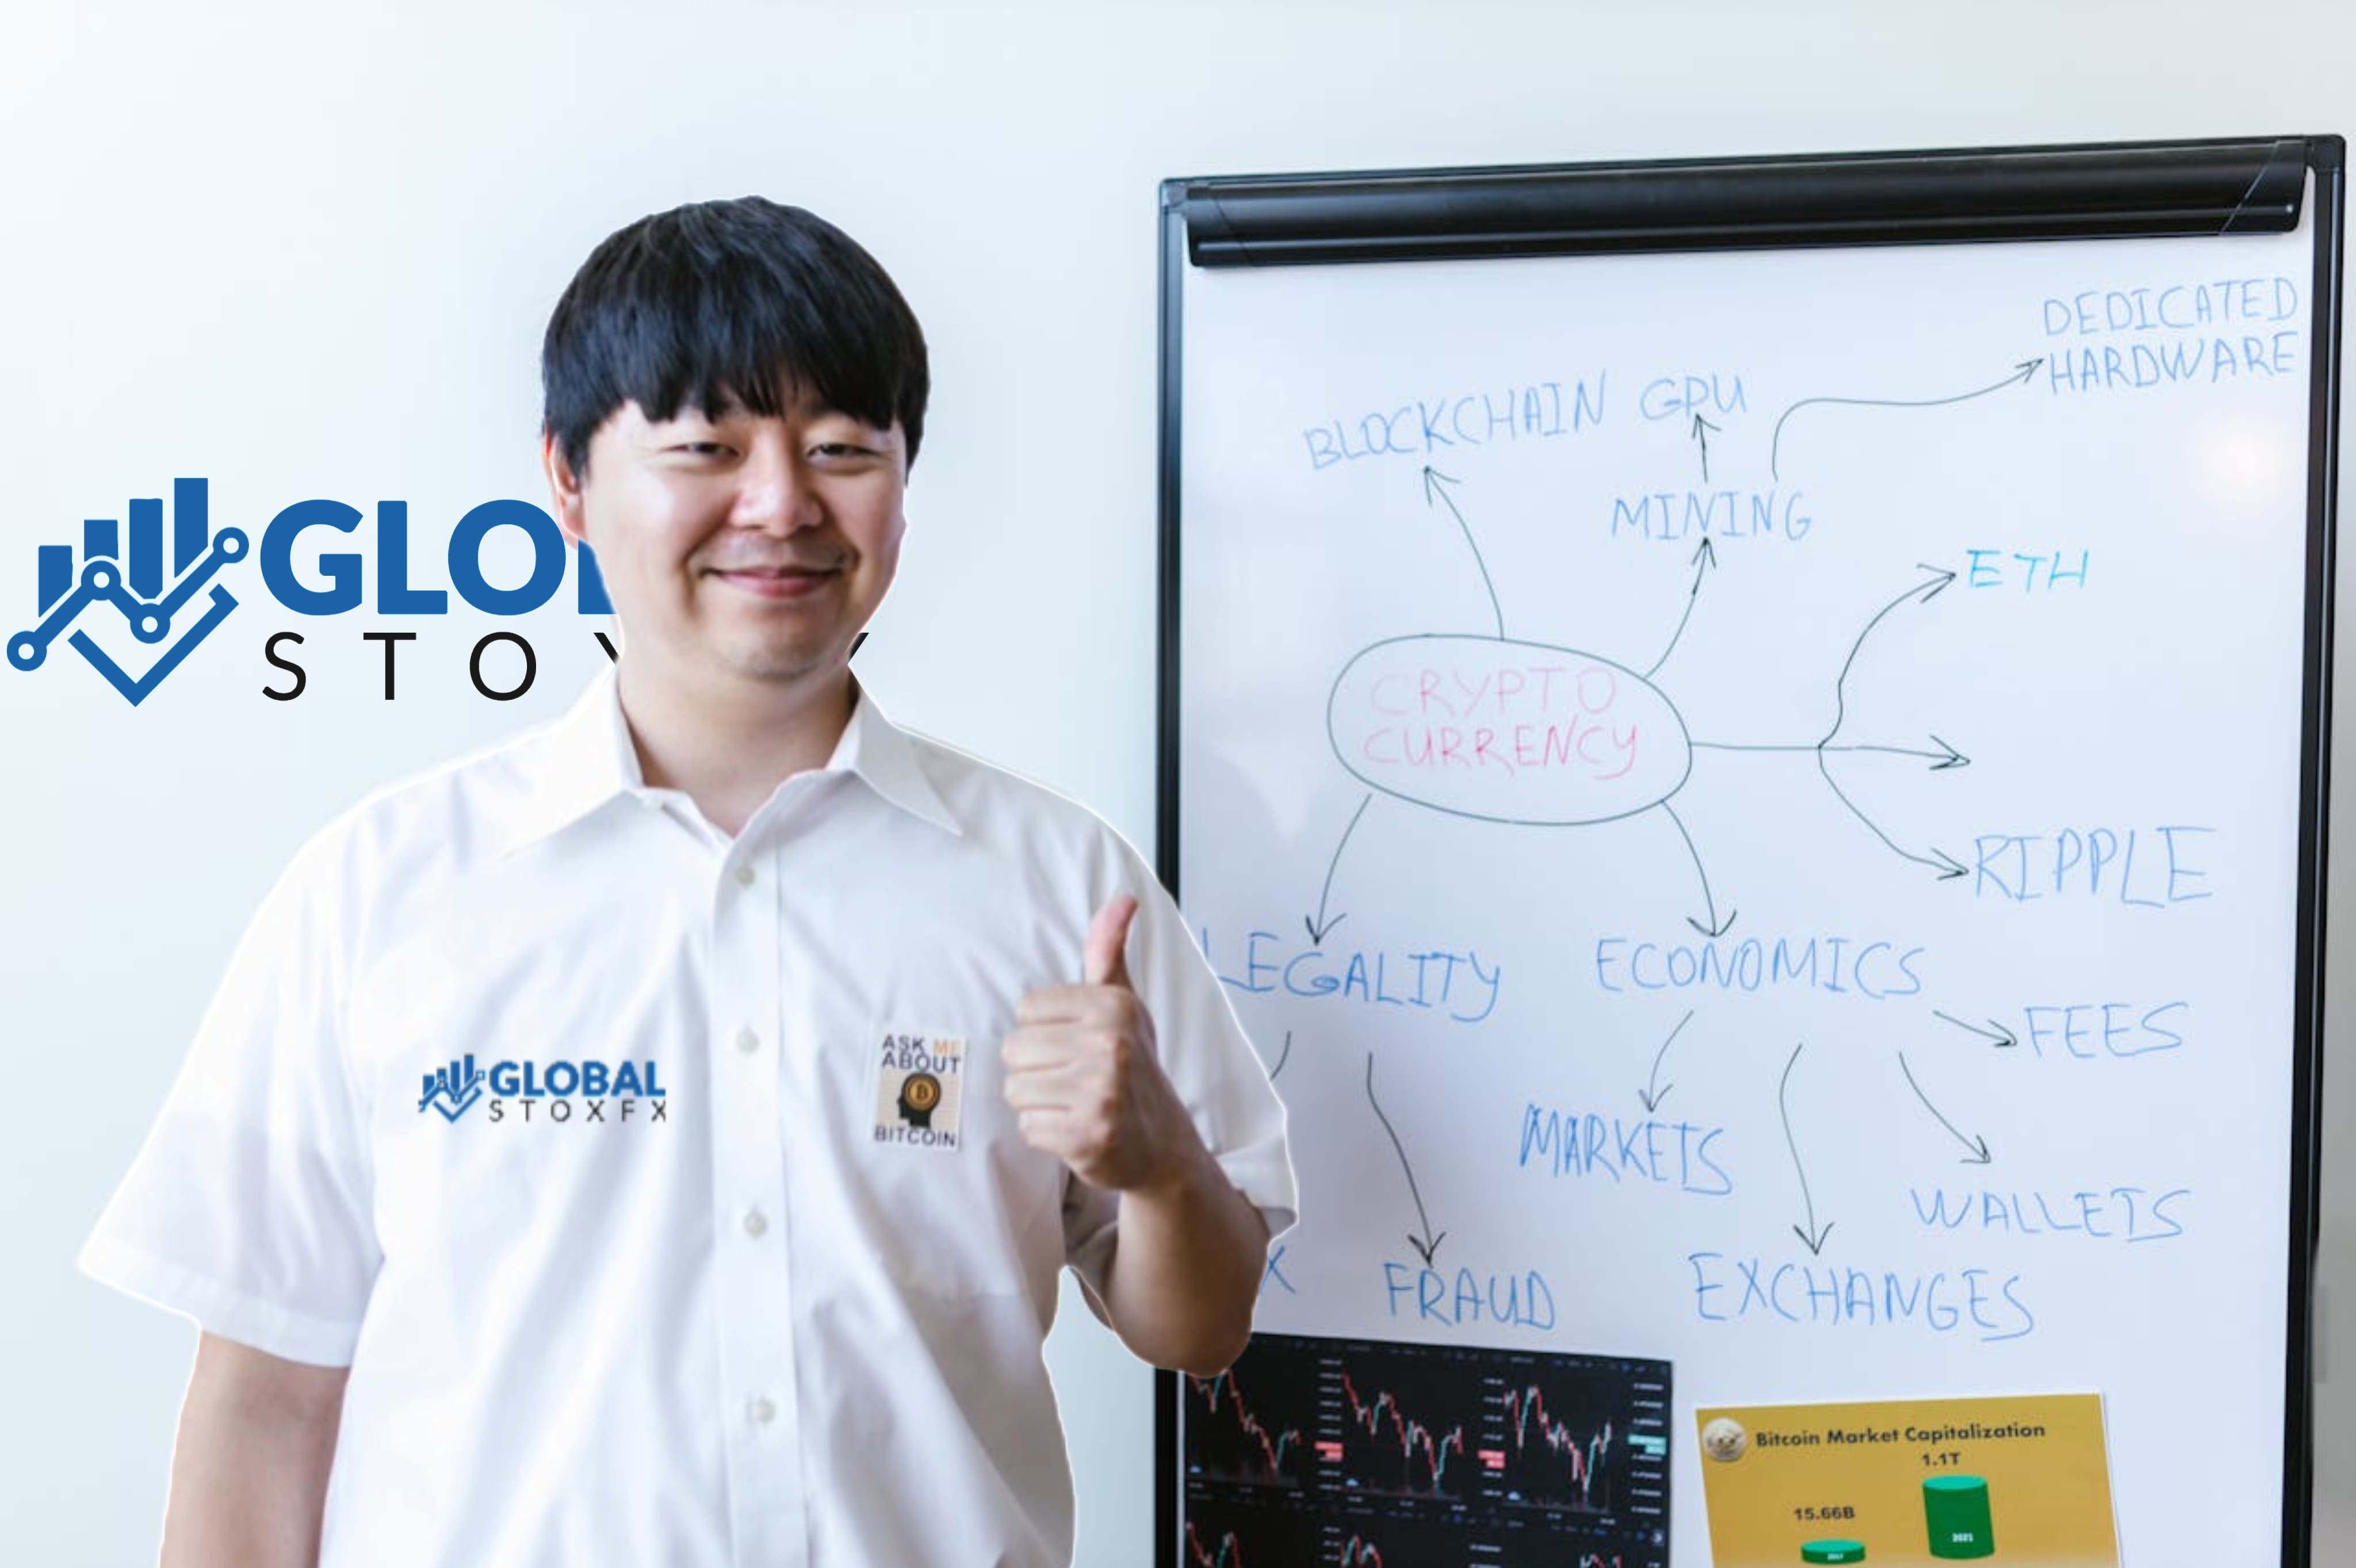 GLO
STOX
GLOBAL
STOXFX
ASK ME
ABOUT
BITCOIN
DEDICATED
HARDWARE
BLOCKCHAIN
GPU
MINING
ETH
CRYPTO
CURRENCY
RIPPLE
LEGALITY
ECONOMICS
FEES
MARKETS
WALLETS
X
FRAUD
EXCHANGES
Bitcoin Market Capitalization
1.1T
15.66B
2021
2017